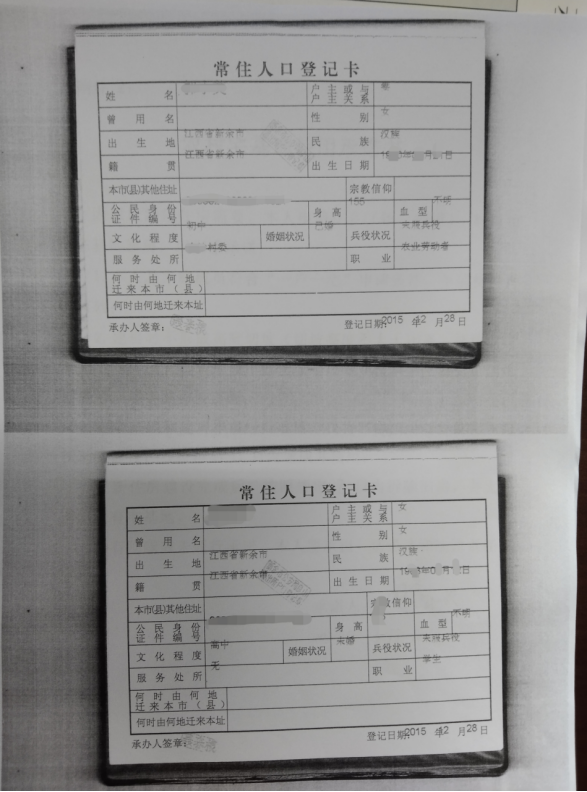 常住人口登记卡
姓名 户主或与户主关系 妻
曾用名 性别 女
出生地 江西省新余市 民族 汉族
籍贯 江西省新余市 出生日期 日
本市(县)其他住址 宗教信仰
公民身份证件编号 身高 155 血型 不明
文化程度 初中 婚姻状况 已婚 兵役状况 未服兵役
服务处所 村委 职业 农业劳动者
何时由何地迁来本市(县)
何时由何地迁来本址
承办人签章: 登记日期:2015 年12 月28 日
常住人口登记卡
姓名 户主或与户主关系 女
曾用名 性别 女
出生地 江西省新余市 民族 汉族
籍贯 江西省新余市 出生日期 日
本市(县)其他住址 宗教信仰
公民身份证件编号 身高 血型 不明
文化程度 高中 婚姻状况 未婚 兵役状况 未服兵役
服务处所 无 职业 学生
何时由何地迁来本市(县)
何时由何地迁来本址
承办人签章: 登记日期:2015 年12 月28 日